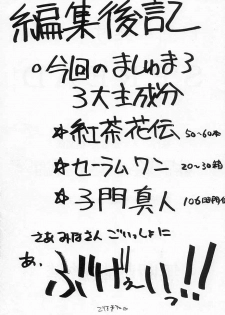 編集後記
○今回のましゅまろ
3大主成分
☆紅茶花伝 50~60本
☆セーラムワン 20~30箱
☆子門真人 106回
さぁみなさんごいっしょに
あ、
ぶげぇいっ!!